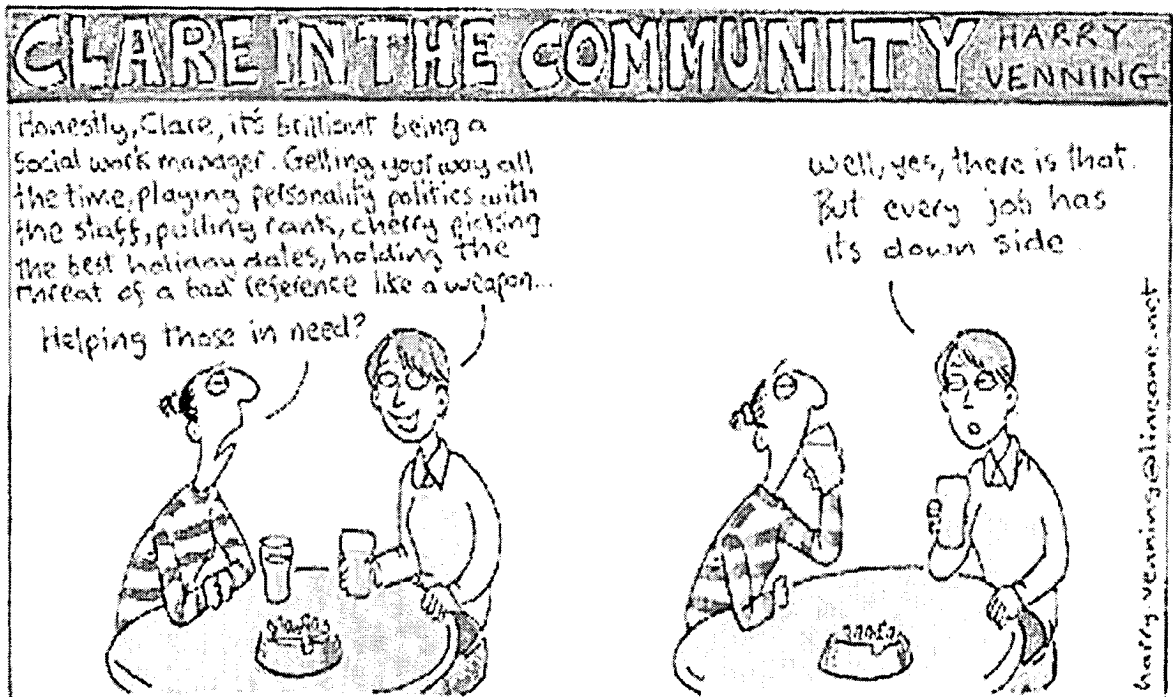 CLARE IN THE COMMUNITY
HARRY
VENNING
Honestly, Clare, it's brilliant being a
social work manager. Getting your way all
the time, playing personality politics with
the staff, pulling rank, cherry picking
the best holiday dates, holding the
threat of a bad reference like a weapon...
Helping those in need?
Well, yes, there is that.
But every job has
its down side.
harry.venning@lineone.net